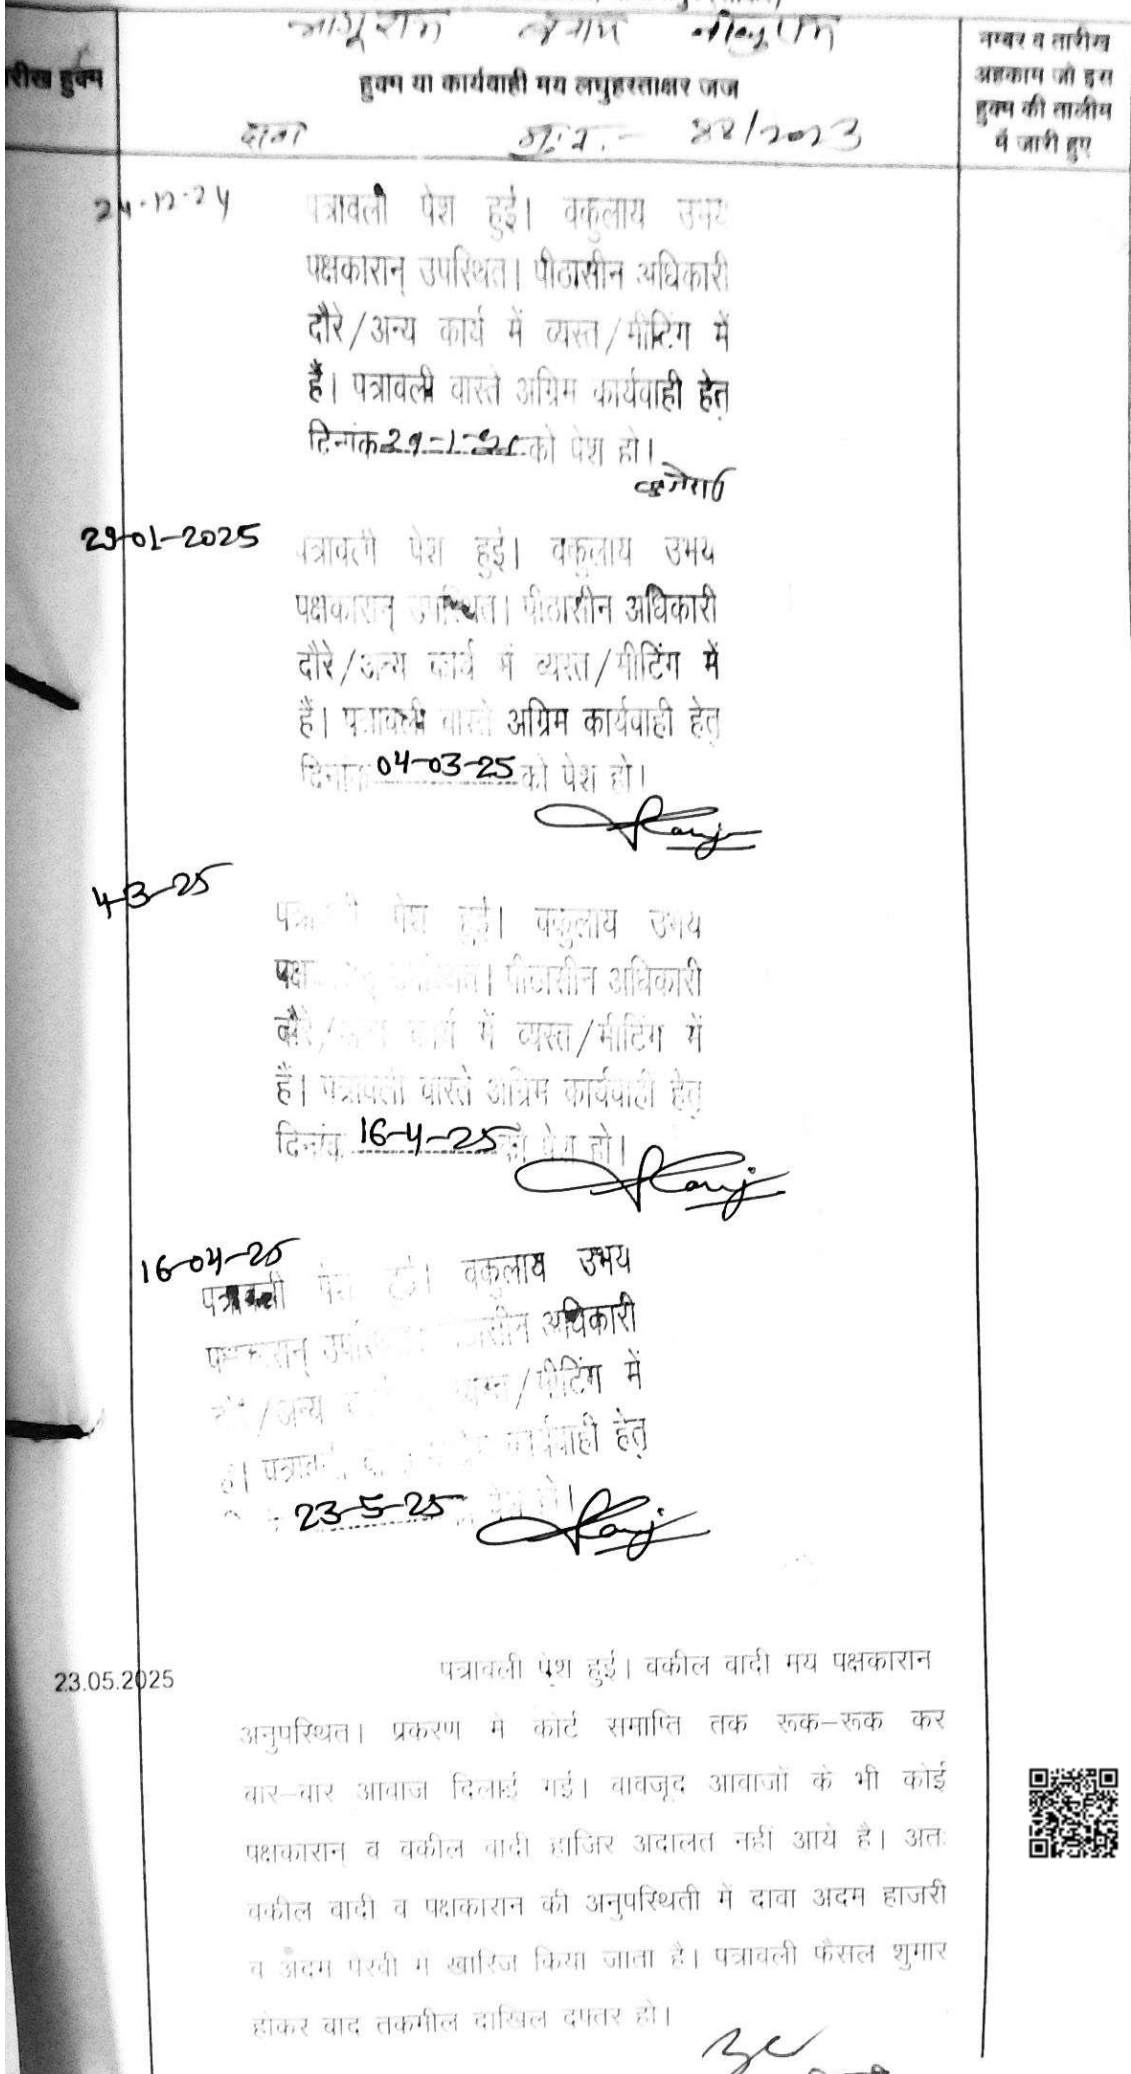 बनाम
रीख हुक्म
हुक्म या कार्यवाही मय लघुहस्ताक्षर जज
नम्बर व तारीख
अहकाम जो इस
हुक्म की तालीम
में जारी हुए
दावा
/2023
24-12-24
पत्रावली पेश हुई। वकुलाय उभय
पक्षकारान् उपस्थित। पीठासीन अधिकारी
दौरे/अन्य कार्य में व्यस्त/मीटिंग में
है। पत्रावली वास्ते अग्रिम कार्यवाही हेतु
दिनांक 29-1-25 को पेश हो।
29-01-2025
पत्रावली पेश हुई। वकुलाय उभय
पक्षकारान् उपस्थित। पीठासीन अधिकारी
दौरे/अन्य कार्य में व्यस्त/मीटिंग में
है। पत्रावली वास्ते अग्रिम कार्यवाही हेतु
दिनांक 04-03-25 को पेश हो।
4-3-25
पेश हुई। वकुलाय उभय
पीठासीन अधिकारी
दौरे/अन्य कार्य में व्यस्त/मीटिंग में
है। पत्रावली वास्ते अग्रिम कार्यवाही हेतु
दिनांक 16-4-25 को पेश हो।
16-04-25
पत्रावली पेश हुई। वकुलाय उभय
पक्षकारान् अधिकारी
/अन्य व्यस्त/मीटिंग में
है। कार्यवाही हेतु
23-5-25 पेश हो।
23.05.2025
पत्रावली पेश हुई। वकील वादी मय पक्षकारान
अनुपस्थित। प्रकरण में कोर्ट समाप्ति तक रूक-रूक कर
बार-बार आवाज दिलाई गई। बावजूद आवाजों के भी कोई
पक्षकारान व वकील वादी हाजिर अदालत नहीं आये है। अतः
वकील वादी व पक्षकारान की अनुपस्थिती में दावा अदम हाजरी
व अदम पैरवी में खारिज किया जाता है। पत्रावली फैसल शुमार
होकर बाद तकमील दाखिल दफ्तर हो।